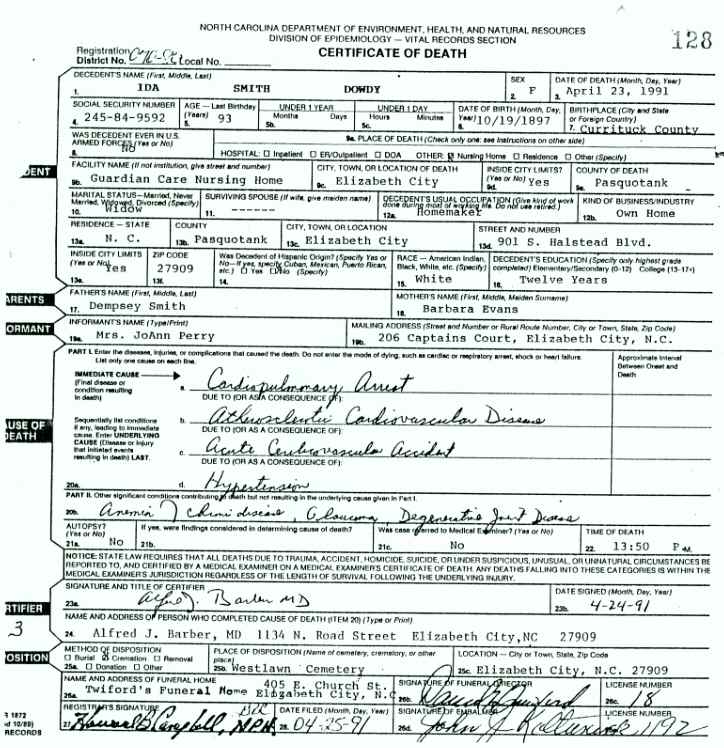 NORTH CAROLINA DEPARTMENT OF ENVIRONMENT, HEALTH, AND NATURAL RESOURCES
DIVISION OF EPIDEMIOLOGY — VITAL RECORDS SECTION
CERTIFICATE OF DEATH
128
Registration District No. Local No.
DECEDENT'S NAME (First, Middle, Last)
1. IDA SMITH DOWDY
SEX
2. F
DATE OF DEATH (Month, Day, Year)
3. April 23, 1991
SOCIAL SECURITY NUMBER
4. 245-84-9592
AGE — Last Birthday (Years)
93
UNDER 1 YEAR
Months Days
5b.
UNDER 1 DAY
Hours Minutes
5c.
DATE OF BIRTH (Month, Day, Year)
6. 10/19/1897
BIRTHPLACE (City and State or Foreign Country)
7. Currituck County
WAS DECEDENT EVER IN U.S. ARMED FORCES? (Yes or No)
8. No
9a. PLACE OF DEATH (Check only one: see instructions on other side)
HOSPITAL: Inpatient ER/Outpatient DOA OTHER: Nursing Home Residence Other (Specify)
FACILITY NAME (If not institution, give street and number)
9b. Guardian Care Nursing Home
CITY, TOWN, OR LOCATION OF DEATH
9c. Elizabeth City
INSIDE CITY LIMITS? (Yes or No)
9d. Yes
COUNTY OF DEATH
9e. Pasquotank
MARITAL STATUS—Married, Never Married, Widowed, Divorced (Specify)
10. Widow
SURVIVING SPOUSE (If wife, give maiden name)
11. ------
DECEDENT'S USUAL OCCUPATION (Give kind of work done during most of working life. Do not use retired.)
12a. Homemaker
KIND OF BUSINESS/INDUSTRY
12b. Own Home
RESIDENCE – STATE
13a. N. C.
COUNTY
13b. Pasquotank
CITY, TOWN, OR LOCATION
13c. Elizabeth City
STREET AND NUMBER
13d. 901 S. Halstead Blvd.
INSIDE CITY LIMITS (Yes or No)
13e. Yes
ZIP CODE
13f. 27909
Was Decedent of Hispanic Origin? (Specify Yes or No—If yes, specify Cuban, Mexican, Puerto Rican, etc.) Yes No (Specify)
14.
RACE — American Indian, Black, White, etc. (Specify)
15. White
DECEDENT'S EDUCATION (Specify only highest grade completed) Elementary/Secondary (0-12) College (13-17+)
16. Twelve Years
PARENTS
FATHER'S NAME (First, Middle, Last)
17. Dempsey Smith
MOTHER'S NAME (First, Middle, Maiden Surname)
18. Barbara Evans
INFORMANT'S NAME (Type/Print)
19a. Mrs. JoAnn Perry
MAILING ADDRESS (Street and Number or Rural Route Number, City or Town, State, Zip Code)
19b. 206 Captains Court, Elizabeth City, N.C.
PART I. Enter the disease, injuries, or complications that caused the death. Do not enter the mode of dying, such as cardiac or respiratory arrest, shock or heart failure.
List only one cause on each line.
Approximate Interval Between Onset and Death
IMMEDIATE CAUSE (Final disease or condition resulting in death)
a. Cardiopulmonary Arrest
DUE TO (OR AS A CONSEQUENCE OF):
Sequentially list conditions if any, leading to immediate cause. Enter UNDERLYING CAUSE (Disease or injury that initiated events resulting in death) LAST.
b. Atherosclerotic Cardiovascular Disease
DUE TO (OR AS A CONSEQUENCE OF):
c. Acute Cerebrovascular Accident
DUE TO (OR AS A CONSEQUENCE OF):
20a. d. Hypertension
PART II. Other significant conditions contributing to death but not resulting in the underlying cause given in Part I.
20b. Anemia disease, Glaucoma, Degenerative Joint Disease
AUTOPSY? (Yes or No)
21a. No
If yes, were findings considered in determining cause of death?
21b.
Was case referred to Medical Examiner? (Yes or No)
21c. No
TIME OF DEATH
22. 13:50 P M.
NOTICE: STATE LAW REQUIRES THAT ALL DEATHS DUE TO TRAUMA, ACCIDENT, HOMICIDE, SUICIDE, OR UNDER SUSPICIOUS, UNUSUAL, OR UNNATURAL CIRCUMSTANCES BE
REPORTED TO, AND CERTIFIED BY A MEDICAL EXAMINER ON A MEDICAL EXAMINER'S CERTIFICATE OF DEATH. ANY DEATHS FALLING INTO THESE CATEGORIES IS WITHIN THE
MEDICAL EXAMINER'S JURISDICTION REGARDLESS OF THE LENGTH OF SURVIVAL FOLLOWING THE UNDERLYING INJURY.
SIGNATURE AND TITLE OF CERTIFIER
23a. Alfred J. Barber MD
DATE SIGNED (Month, Day, Year)
23b. 4-24-91
3
NAME AND ADDRESS OF PERSON WHO COMPLETED CAUSE OF DEATH (ITEM 20) (Type or Print)
24. Alfred J. Barber, MD 1134 N. Road Street Elizabeth City,NC 27909
METHOD OF DISPOSITION
Burial Cremation Removal
25a. Donation Other
PLACE OF DISPOSITION (Name of cemetery, crematory, or other place)
25b. Westlawn Cemetery
LOCATION — City or Town, State, Zip Code
25c. Elizabeth City, N.C. 27909
NAME AND ADDRESS OF FUNERAL HOME
405 E. Church St.
26a. Twiford's Funeral Home Elizabeth City, N.C
SIGNATURE OF FUNERAL DIRECTOR
26b.
LICENSE NUMBER
26c. 18
REGISTRAR'S SIGNATURE
27. Howard B. Campbell, MPH
DATE FILED (Month, Day, Year)
28. 04-25-91
SIGNATURE OF EMBALMER
26d. John J.
LICENSE NUMBER
1192
1872
10/89)
RECORDS